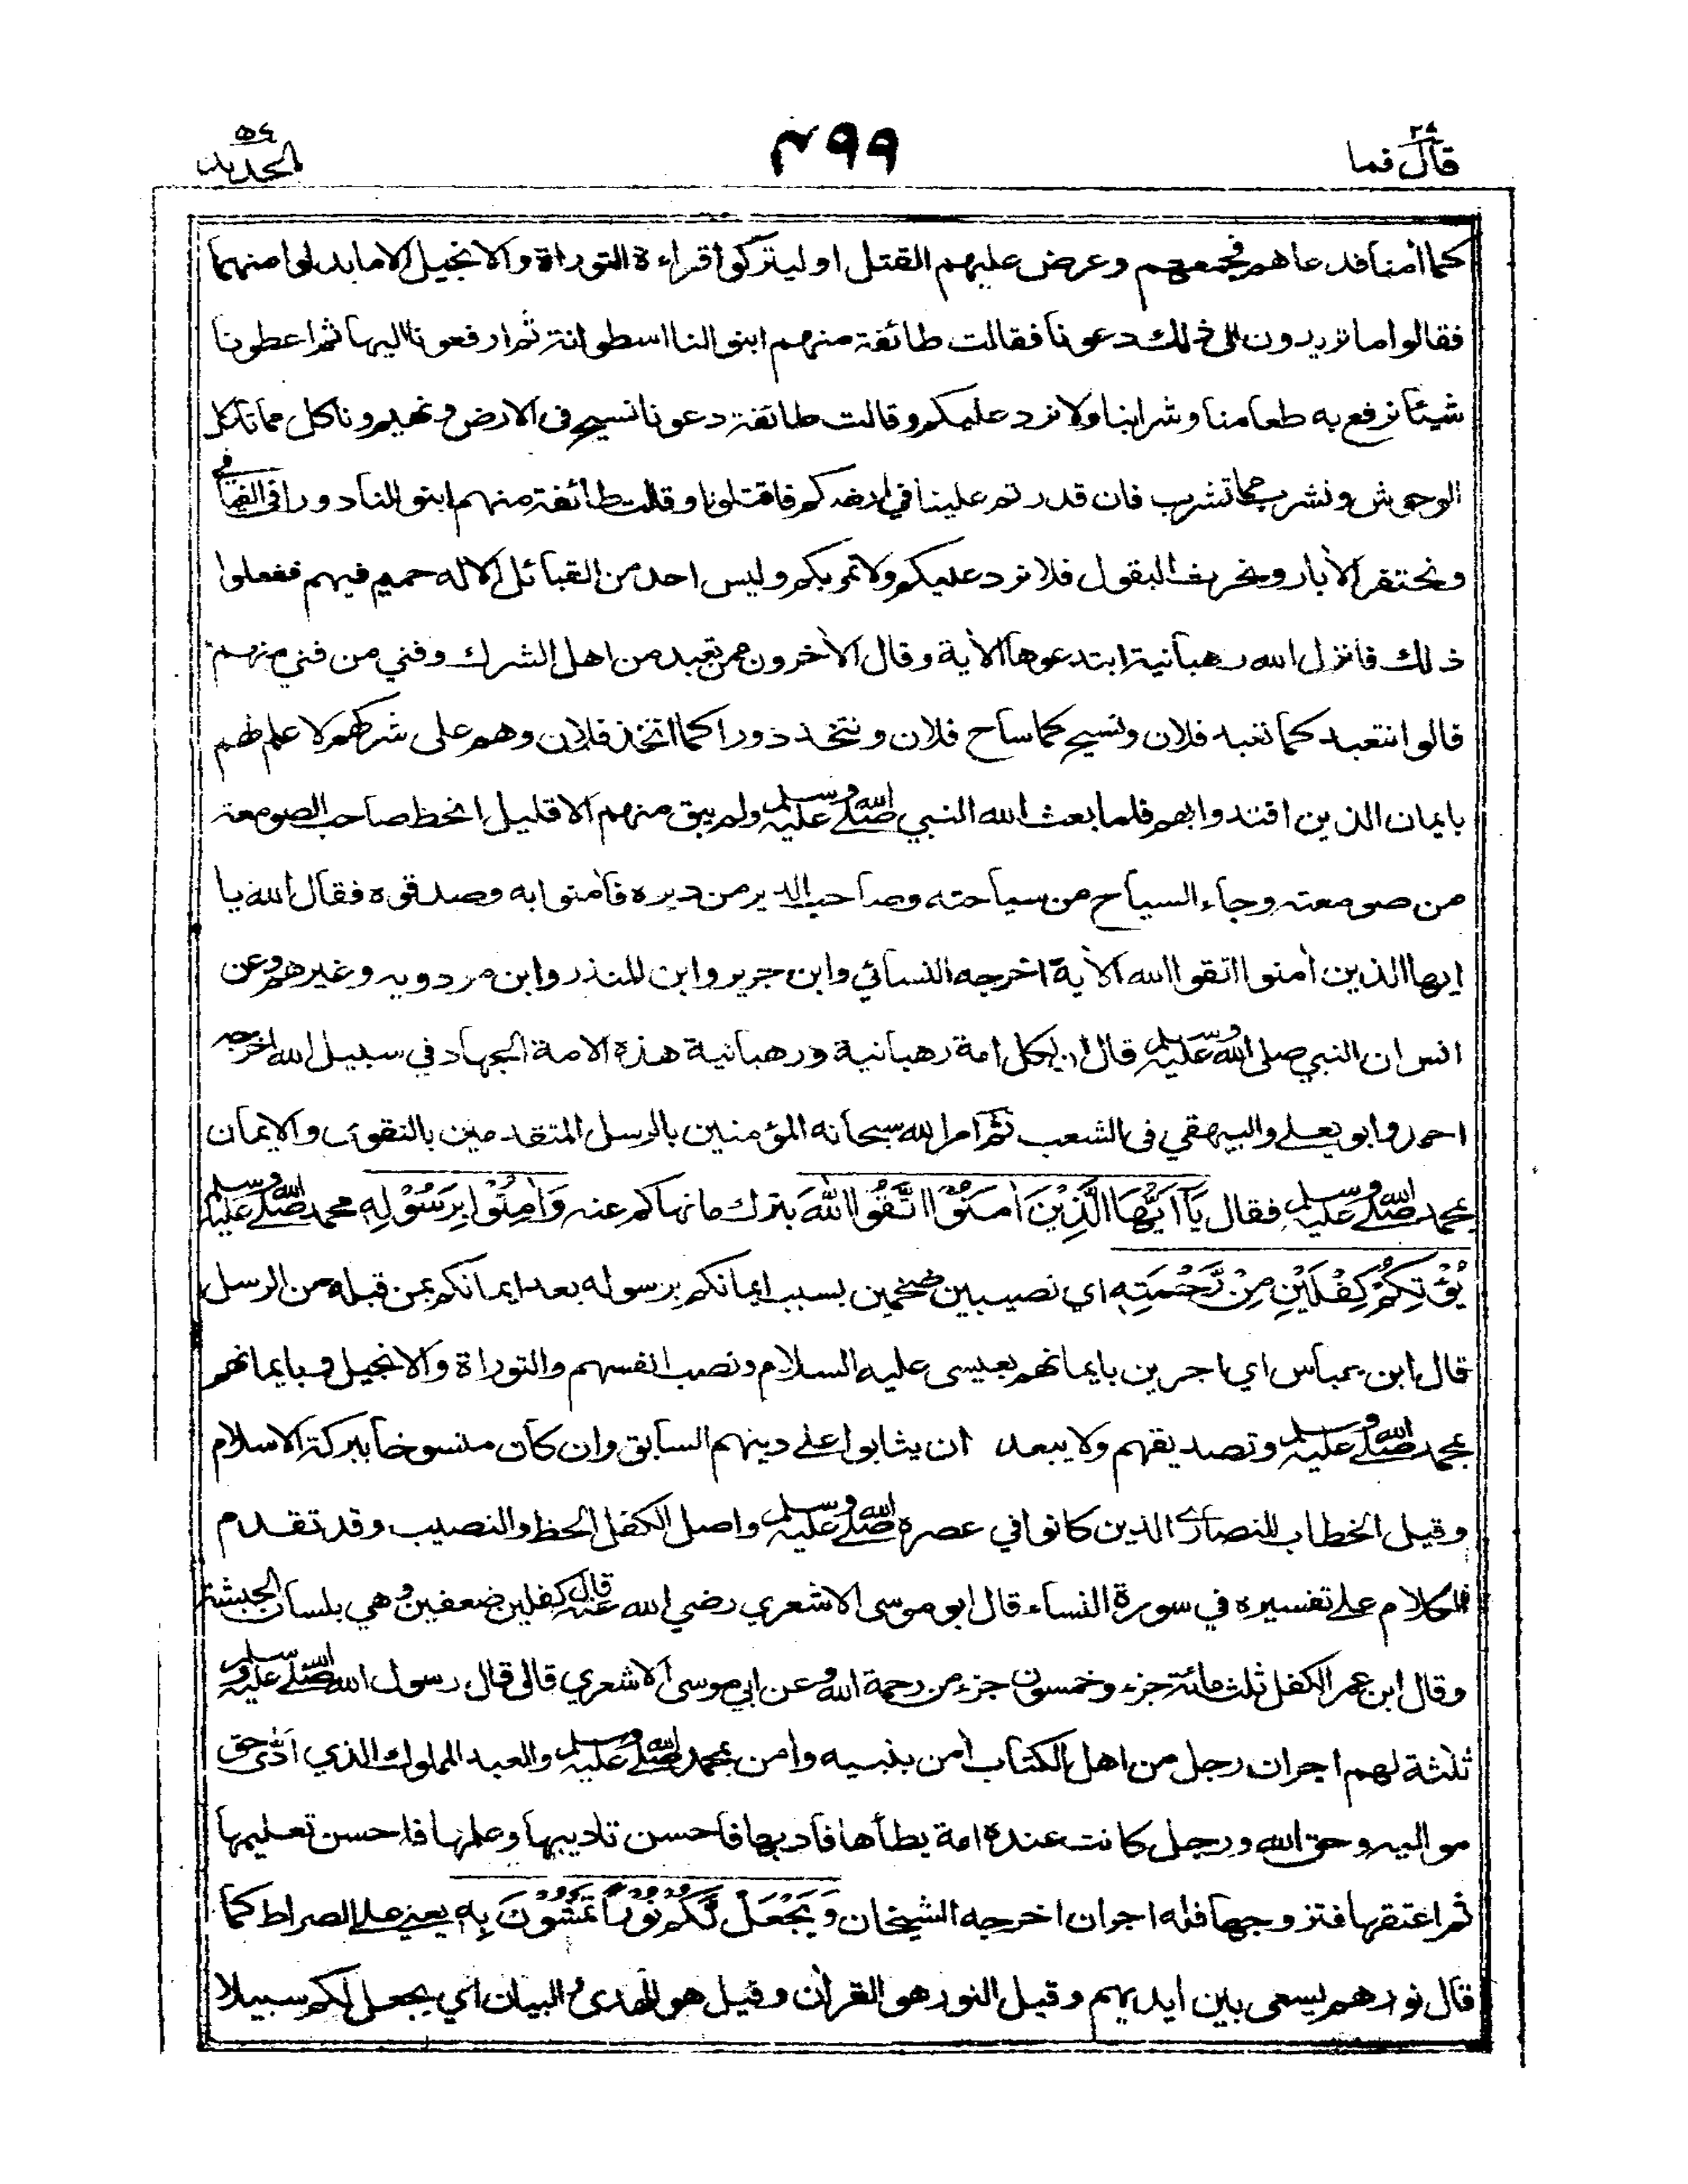 قال فما ٢٧
٢٩٩
الحديد ٥٧
كما أمنا فدعاهم فجمعهم وعرض عليهم القتل او ليتركوا قراءة التوراة والانجيل الا ما بدلوا منهما
فقالوا ما تريدون الى ذلك دعونا فقالت طائفة منهم ابنوا لنا اسطوانة ثم ارفعونا اليها ثم اعطونا
شيئا نرفع به طعامنا وشرابنا ولا نرد عليكم وقالت طائفة دعونا نسيح فى الارض ونهيم وناكل مما تأكل
الوحوش ونشرب مما تشرب فان قدرتم علينا في ارضكم فاقتلونا وقالت طائفة منهم ابنوا لنا دورا فى الفيافي
ونحتفر الأبار ونحرث البقول فلا نرد عليكم ولا نمر بكم وليس احد من القبائل الا له حميم فيهم ففعلوا
ذلك فانزل الله رهبانية ابتدعوها الأية وقال الأخرون ممن تعبد من اهل الشرك وفني من فني منهم
قالوا نتعبد كما تعبد فلان ونسيح كما ساح فلان ونتخذ دورا كما اتخذ فلان وهم على شركهم لا علم لهم
بايمان الذين اقتدوا بهم فلما بعث الله النبي صلى الله عليه وسلم ولم يبق منهم الا قليل انحط صاحب الصومعة
من صومعته وجاء السياح من سياحته وصاحب الدير من ديره فأمنوا به وصدقوه فقال الله يا
ايها الذين أمنوا اتقوا الله الأية اخرجه النسائي وابن جرير وابن المنذر وابن مردويه وغيرهم وعن
انس ان النبي صلى الله عليه وسلم قال ان لكل امة رهبانية ورهبانية هذه الامة الجهاد في سبيل الله اخرجه
احمد وابو يعلى والبيهقي فى الشعب ثم امر الله سبحانه المؤمنين بالرسل المتقدمين بالتقوى والايمان
بمحمد صلى الله عليه وسلم فقال يَآ اَيُّهَا الَّذِيْنَ اٰمَنُوْا اتَّقُوا اللّٰهَ بترك ما نهاكم عنه وَاٰمِنُوْا بِرَسُوْلِهٖ محمد صلى الله عليه وسلم
يُؤْتِكُمْ كِفْلَيْنِ مِنْ رَّحْمَتِهٖ اي نصيبين ضخمين بسبب ايمانكم برسوله بعد ايمانكم بمن قبله من الرسل
قال ابن عباس اي اجرين بايمانهم بعيسى عليه السلام ونصب انفسهم والتوراة والانجيل وبايمانهم
بمحمد صلى الله عليه وسلم وتصديقهم ولا يبعد ان يثابوا على دينهم السابق وان كان منسوخا ببركة الاسلام
وقيل الخطاب للنصارى الذين كانوا في عصره صلى الله عليه وسلم واصل الكفل الحظ والنصيب وقد تقدم
الكلام على تفسيره في سورة النساء قال ابو موسى الاشعري رضي الله عنه قال كفلين ضعفين وهي بلسان الحبشة
وقال ابن عمر الكفل ثلث مائة جزء وخمسون جزء من رحمة الله وعن ابي موسى الاشعري قال قال رسول الله صلى الله عليه وسلم
ثلثة لهم اجران رجل من اهل الكتاب أمن بنبيه وأمن بمحمد صلى الله عليه وسلم والعبد المملوك الذي ادّى حق
مواليه وحق الله ورجل كانت عنده امة يطأها فأدبها فاحسن تاديبها وعلمها فاحسن تعليمها
ثم اعتقها فتزوجها فله اجران اخرجه الشيخان وَيَجْعَلْ لَّكُمْ نُوْرًا تَمْشُوْنَ بِهٖ يعني على الصراط كما
قال نورهم يسعى بين ايديهم وقيل النور هو القرأن وقيل هو الهدى والبيان اي يجعل لكم سبيلا